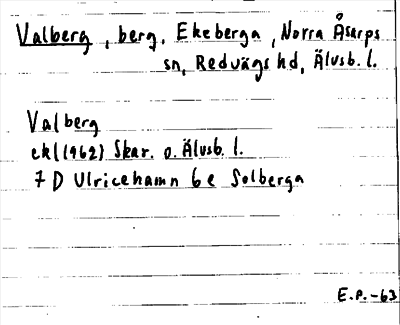 Valberg, berg, Ekeberga, Norra Åsarps
sn, Redvägs hd, Älvsb. l.
Valberg
ekl(1962) Skar. o. Älvsb. l.
7 D Ulricehamn 6 e Solberga
E.P.-63